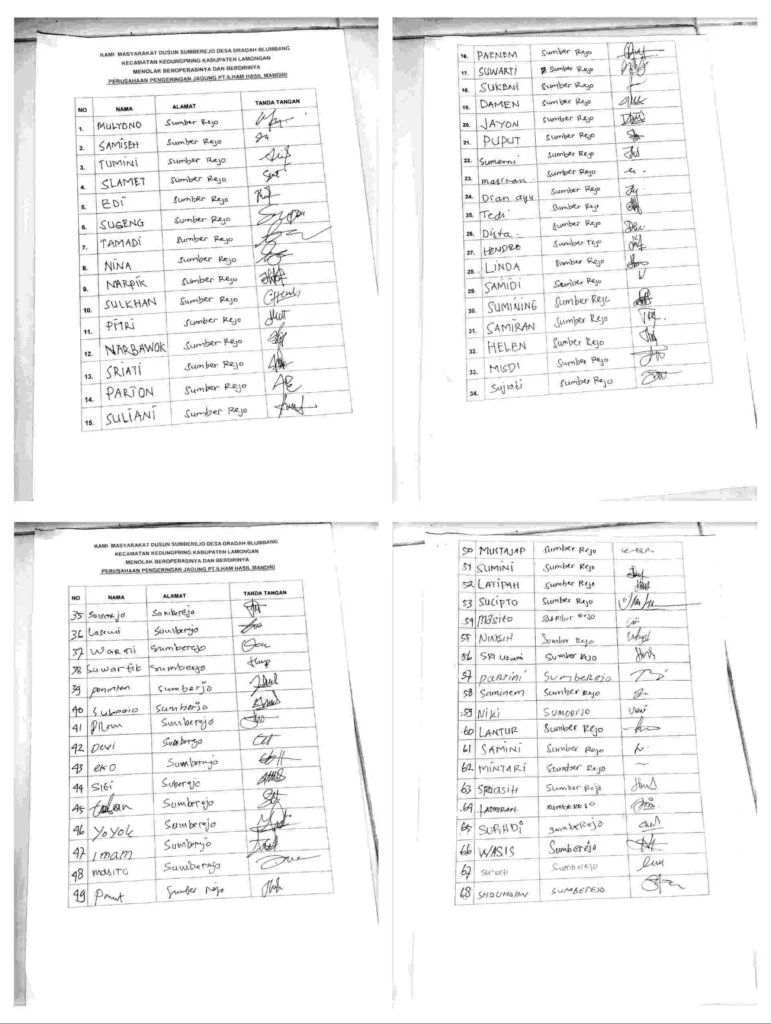 KAMI MASYARAKAT DUSUN SUMBEREJO DESA DRADAH BLUMBANG
KECAMATAN KEDUNGPRING KABUPATEN LAMONGAN
MENOLAK BEROPERASINYA DAN BERDIRINYA
PERUSAHAAN PENGERINGAN JAGUNG PT.ILHAM HASIL MANDIRI
NO NAMA ALAMAT TANDA TANGAN
1. MULYONO Sumber Rejo
2. SAMISEH Sumber Rejo
3. TUMINI Sumber Rejo
4. SLAMET Sumber Rejo
5. EDI Sumber Rejo
6. SUGENG Sumber Rejo
7. TAMADI Sumber Rejo
8. NINA Sumber Rejo
9. NARPIK Sumber Rejo
10. SULKHAN Sumber Rejo
11. PITRI Sumber Rejo
12. NARBAWOK Sumber Rejo
13. SRIATI Sumber Rejo
14. PARTON Sumber Rejo
15. SULIANI Sumber Rejo
16. PAENEM Sumber Rejo
17. SUWARTI Sumber Rejo
18. SUKENI Sumber Rejo
19. DAMEN Sumber Rejo
20. JAYON Sumber Rejo
21. PUPUT Sumber Rejo
22. Sumber Rejo
23. Sumber Rejo
24. Dian ayu Sumber Rejo
25. Tedi Sumber Rejo
26. Dista Sumber Rejo
27. HENDRO Sumber rejo
28. LINDA Sumber Rejo
29. SAMIDI Sumber Rejo
30. SUMINING Sumber Reje
31. SAMIRAN Sumber Rejo
32. HELEN Sumber Rejo
33. MISDI Sumber Rejo
34. Sujiati Sumber Rejo
KAMI MASYARAKAT DUSUN SUMBEREJO DESA DRADAH BLUMBANG
KECAMATAN KEDUNGPRING KABUPATEN LAMONGAN
MENOLAK BEROPERASINYA DAN BERDIRINYA
PERUSAHAAN PENGERINGAN JAGUNG PT.ILHAM HASIL MANDIRI
NO NAMA ALAMAT TANDA TANGAN
35 Somberejo
36 Somberejo
37 Warni Sumberejo
38 Suwartik Sumberejo
39 Sumberjo
40 Sumberjo
41 Sumberjo
42 Devi Sumberjo
43 eko Sumberejo
44 Siti Suberejo
45 Sumberejo
46 YoYok Sumberejo
47 Imam Sumberejo
48 masito Sumberejo
49 Sumber rejo
50 MUSTAJAP Sumber Rejo
51 SUMINI Sumber Rejo
52 LATIPAH Sumber Rejo
53 SUCIPTO Sumber Rejo
54 Masito Sumber Rejo
55 NINGSIH Sumber Rejo
56 Sri utami Sumber Rejo
57 partini SUMBEREJO
58 Saminem Sumber Rejo
59 Niki Sumberjo
60 LANTUR Sumber Rejo
61 SAMINI Sumber Rejo
62 MINTARI Sumber Rejo
63 SRIASIH Sumber Reje
64 SUMBEREJO
65 SUPADI SumbeRejo
66 WASIS Sumberejo
67 Sumberejo
68 SUMBEREJO